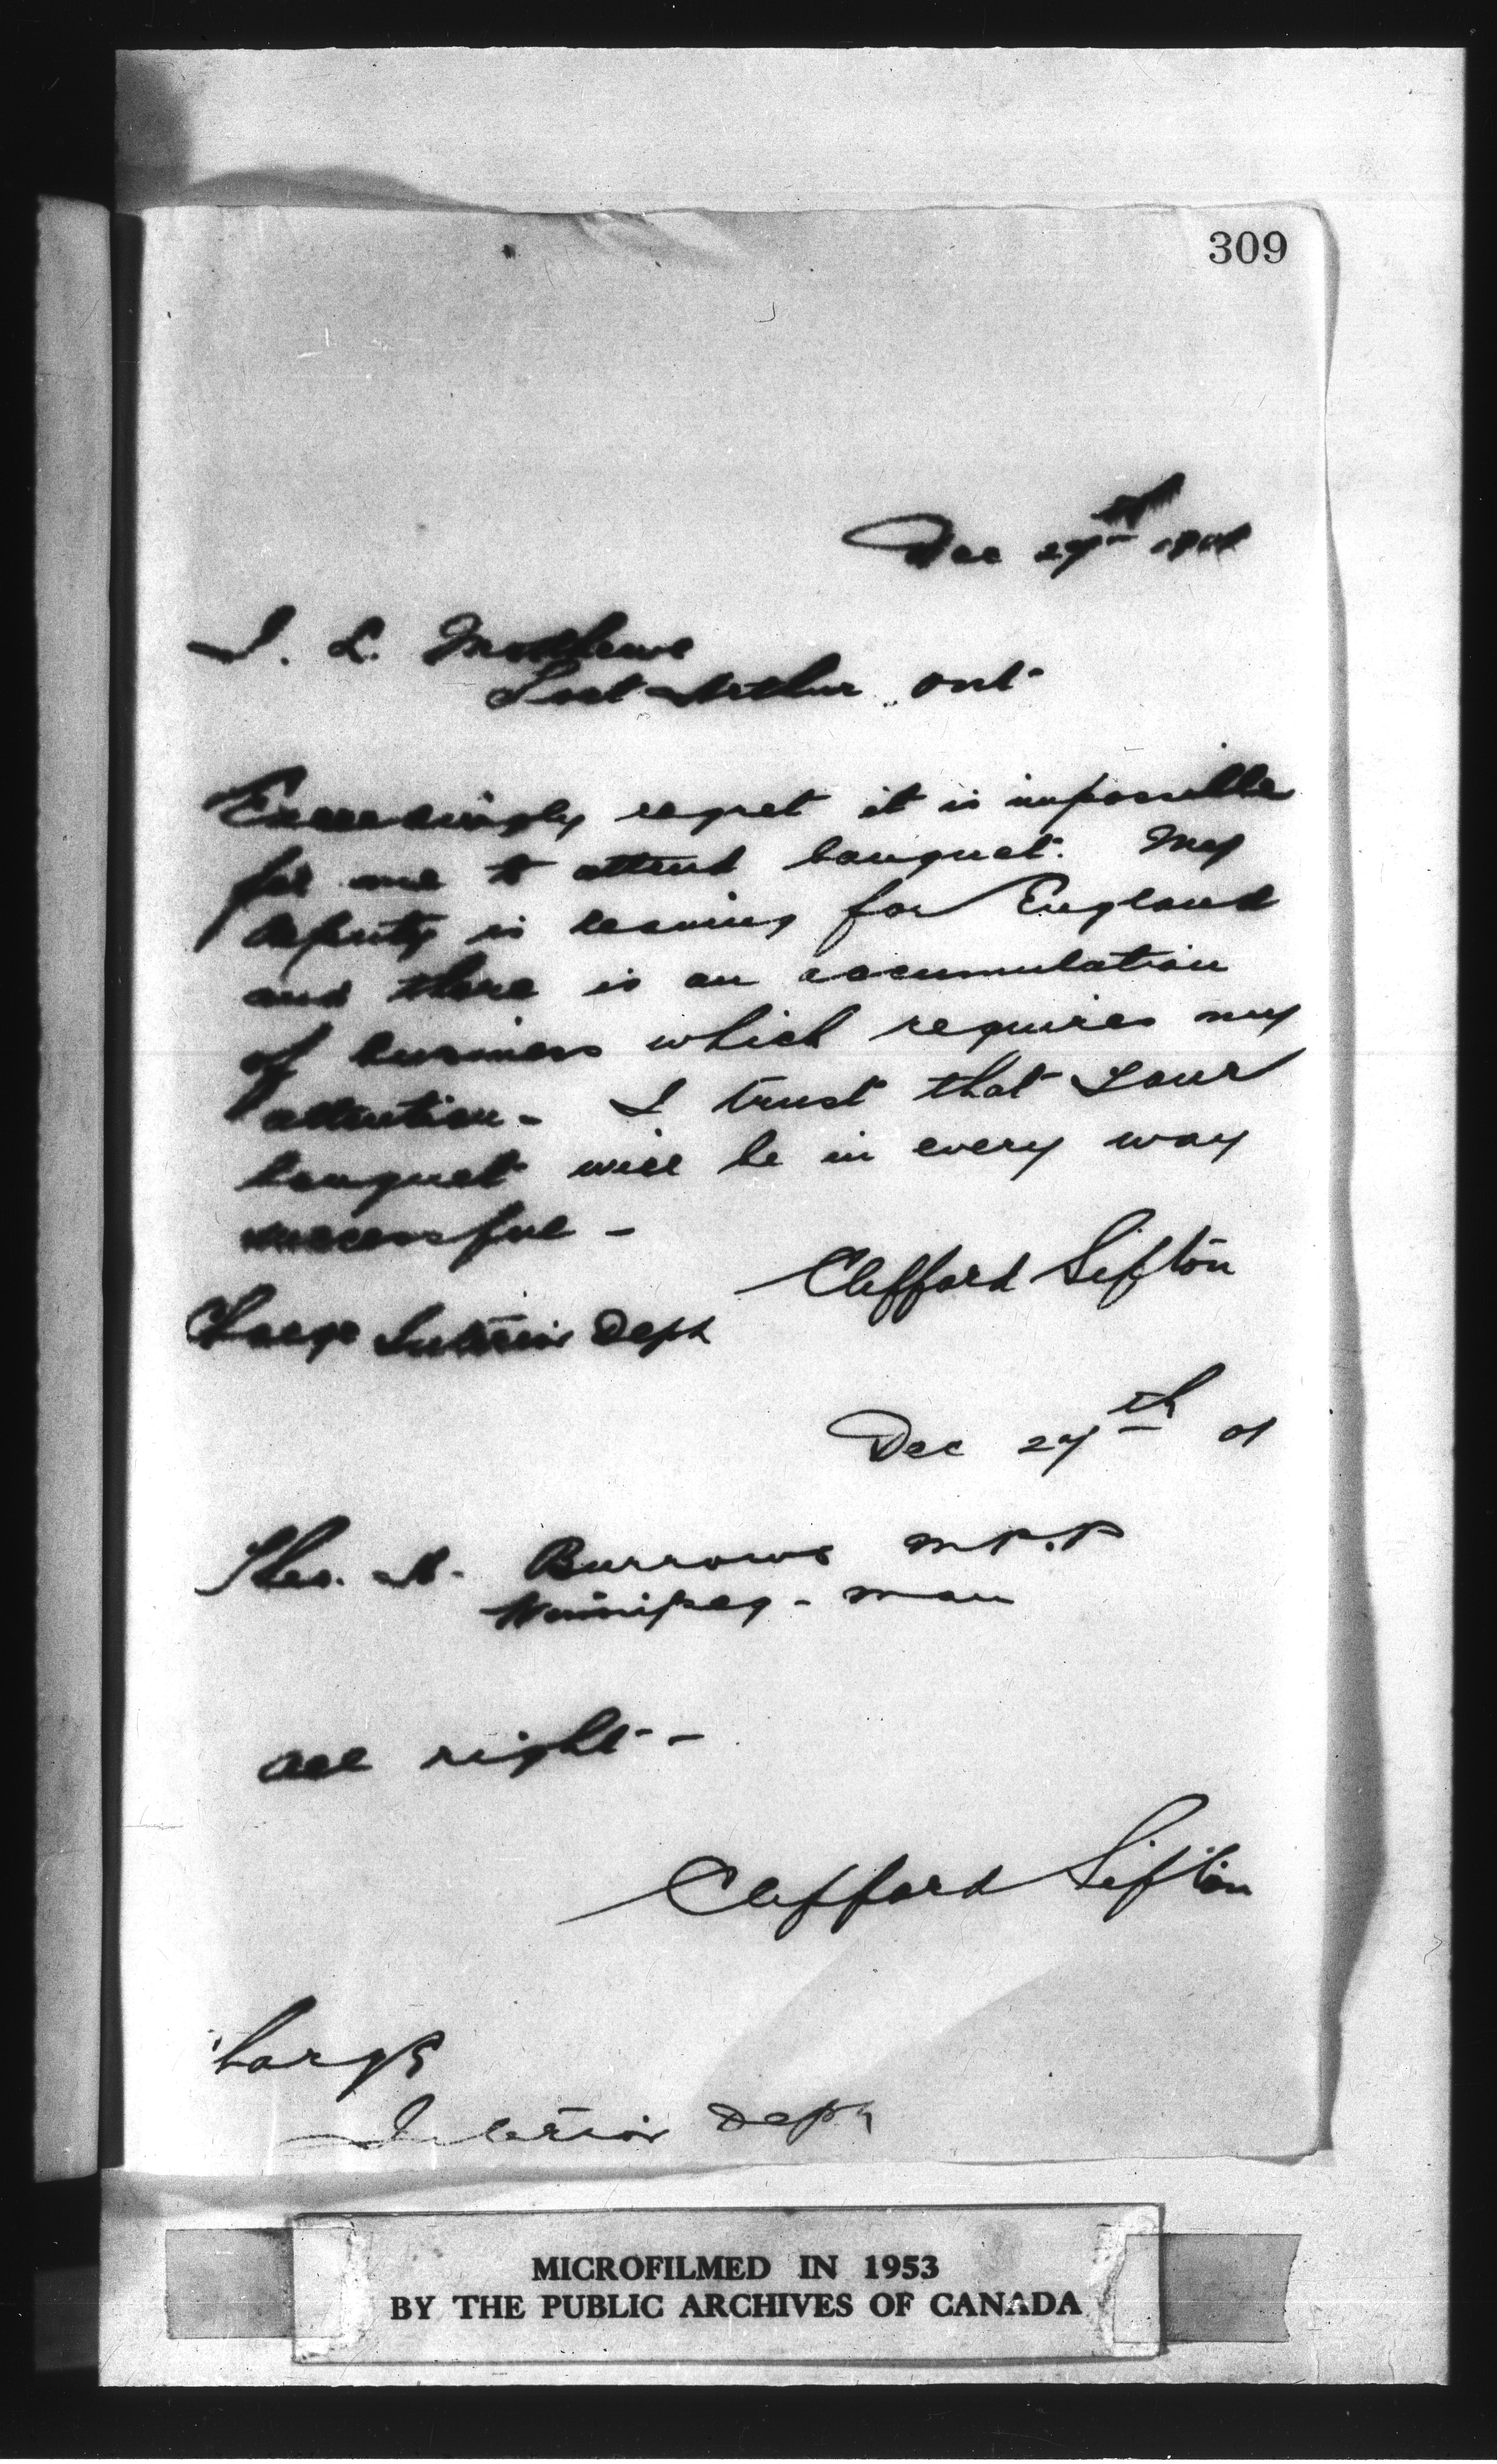 309
Dec 27th 1901
I. L. Matthews
Port Arthur Ont
Exceedingly regret it is impossible
for me to attend banquet. My
deputy is leaving for England
and there is an accumulation
of business which requires my
attention - I trust that your
banquet will be in every way
successful -
Clifford Sifton
Charge Interior Dept
Dec 27th 01
Theo. A. Burrows M.P.P
Winnipeg - Man
All right -
Clifford Sifton
Charge
Interior Dept
MICROFILMED IN 1953
BY THE PUBLIC ARCHIVES OF CANADA